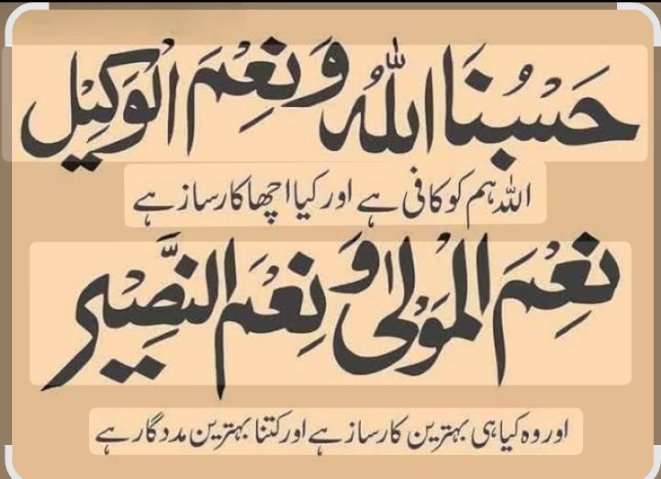 حَسْبُنَا اللهُ وَنِعْمَ الْوَكِيْل
اللہ ہم کو کافی ہے اور کیا اچھا کارساز ہے
نِعْمَ الْمَوْلٰی وَنِعْمَ النَّصِيْر
اور وہ کیا ہی بہترین کارساز ہے اور کتنا بہترین مددگار ہے